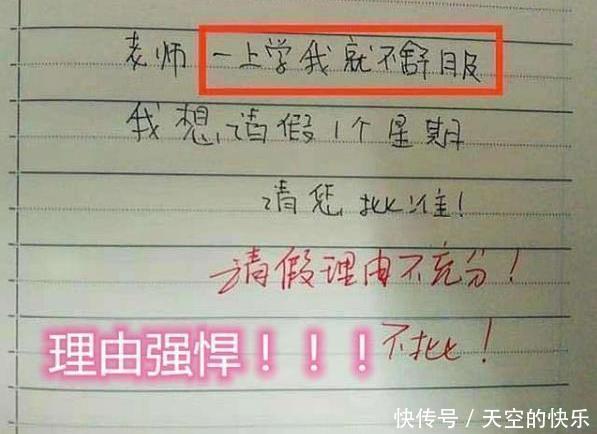 老师 一上学我就不舒服
我想请假1个星期
请您批准！
请假理由不充分！
理由强悍！！！不批！
快传号 / 天空的快乐